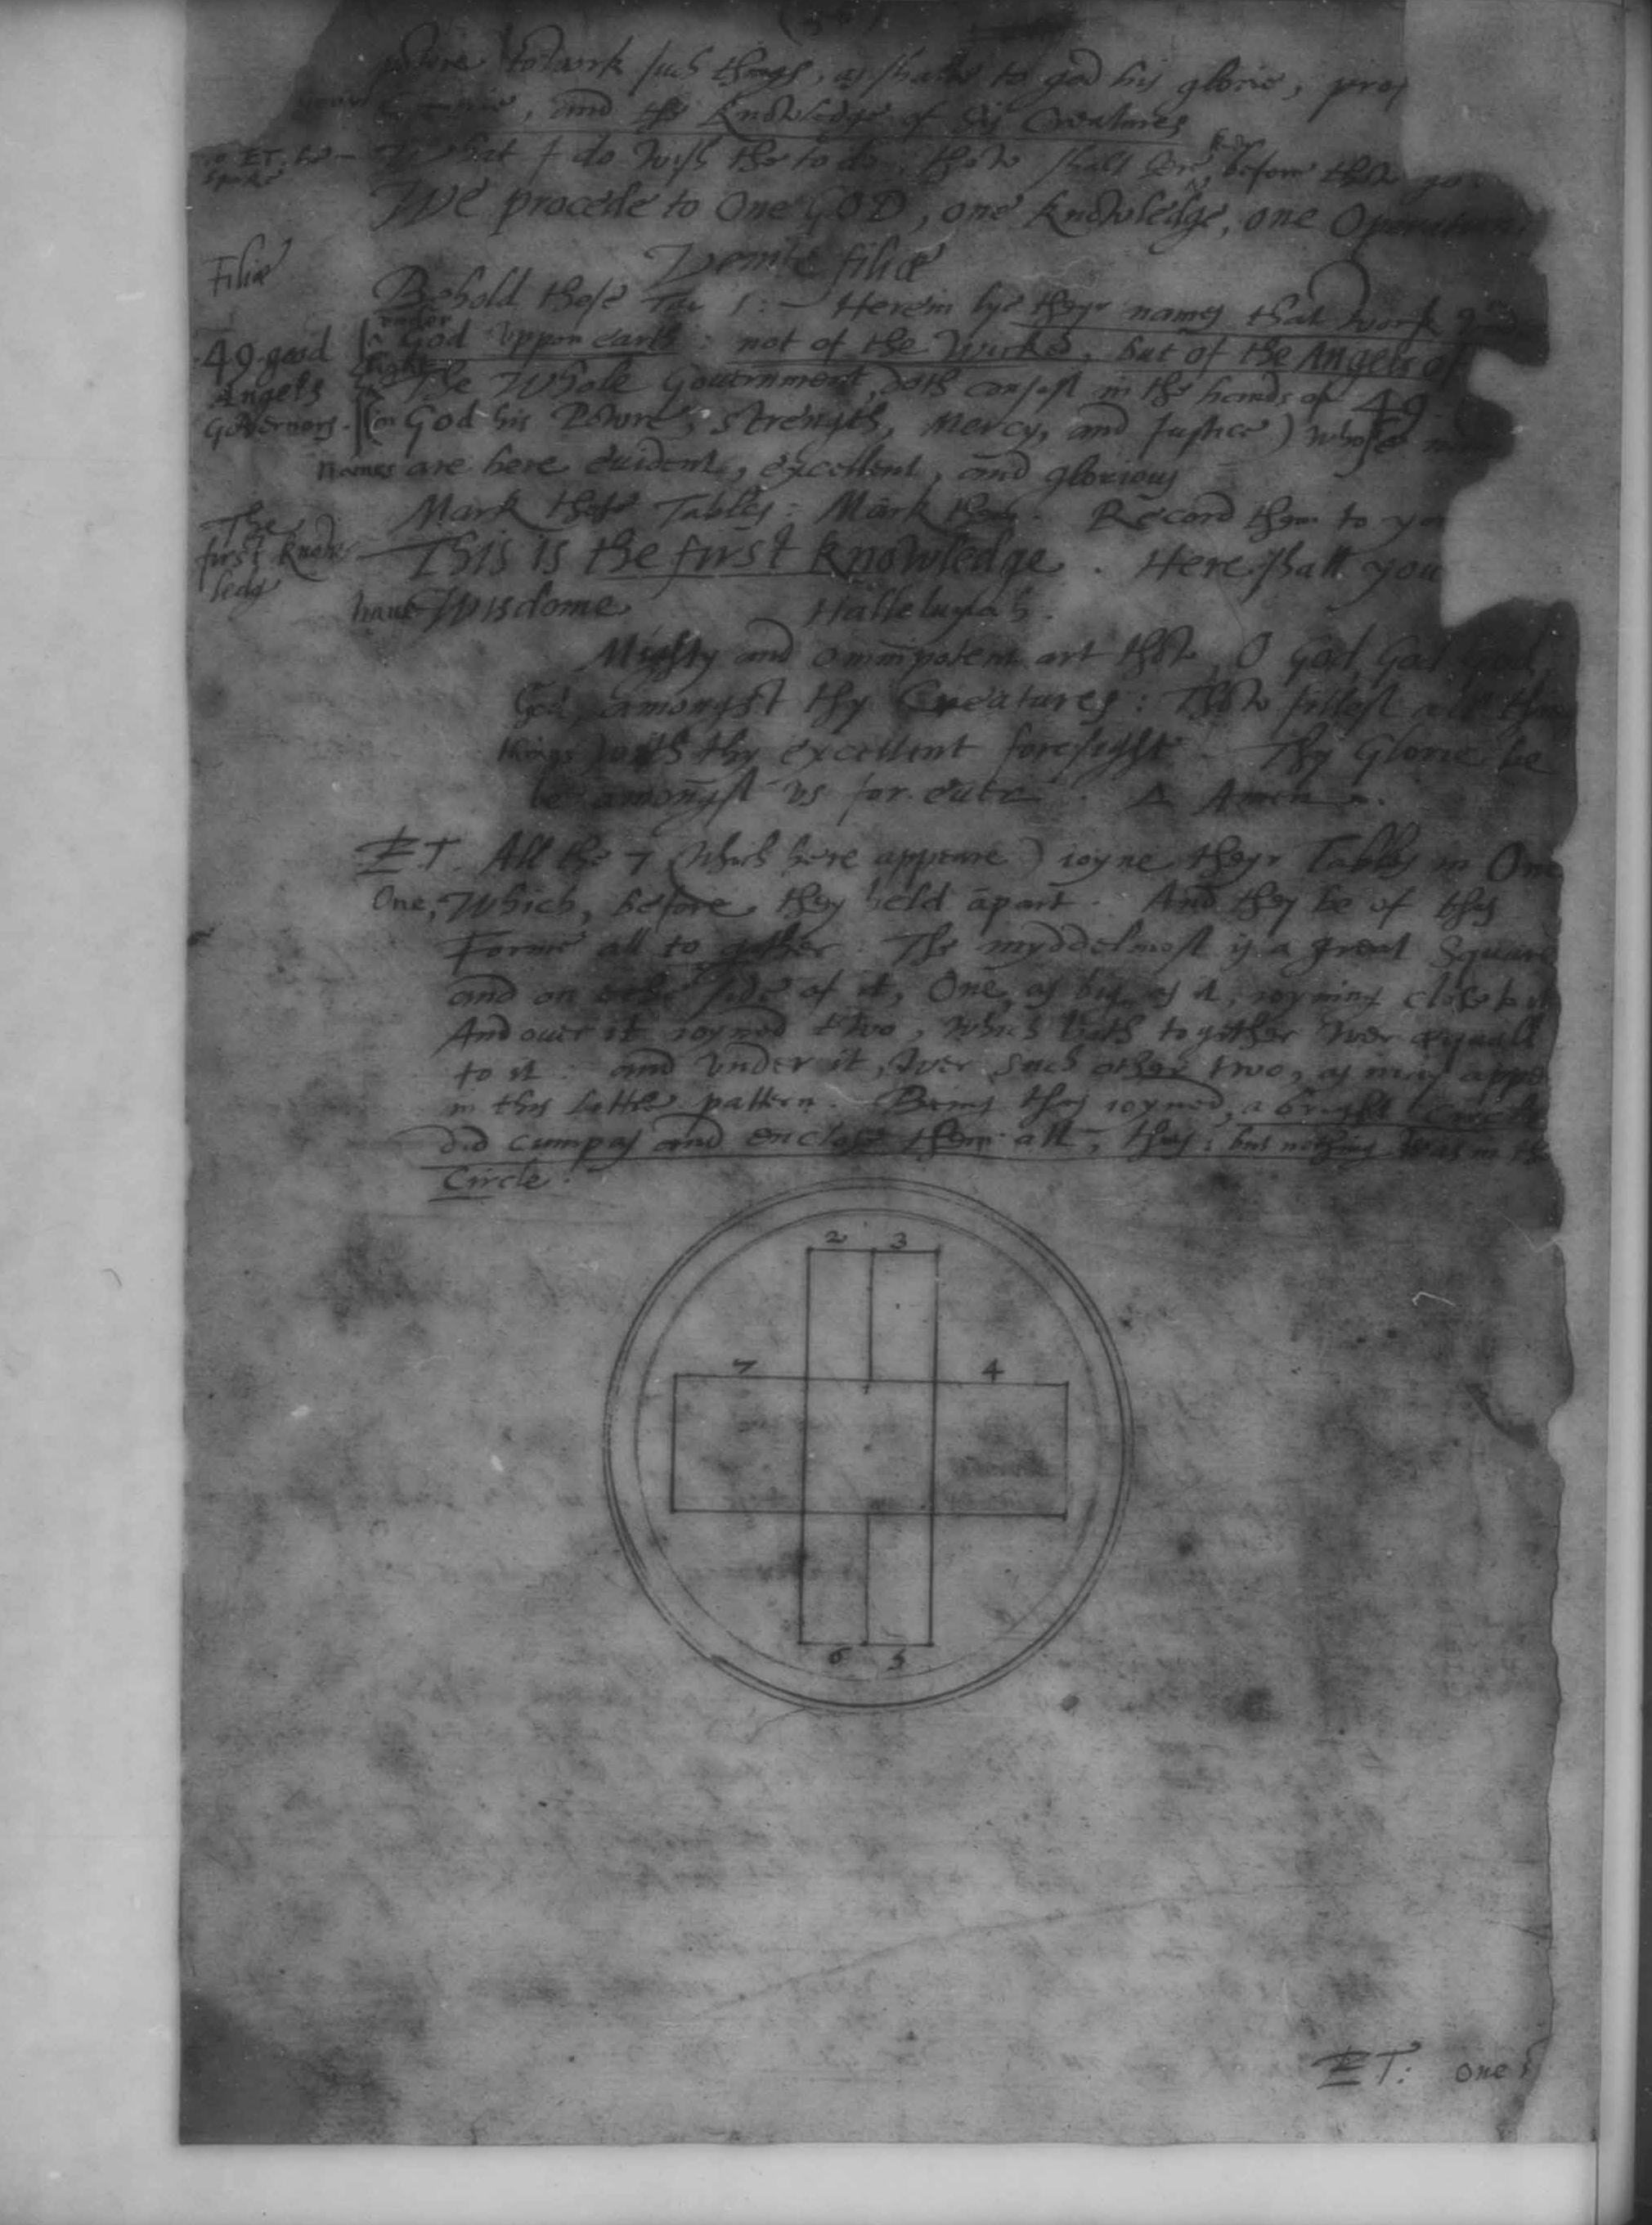 (36)
powre to work such things, as shalbe to god his glorie,
and the knowledge of his Creatures
ET.
What I do wish thee to do, thow shalt here, before thow go
We procede to One GOD, one knowledge, one Operation.
Venite filiæ
Filiæ
Behold these Tables: Herein lye theyr names that work
under
God uppon earth: not of the wicked, but of the Angels of
light
49. good
Angels
Governors.
The Whole Gouernment, doth consist in the hands of 49
God his Powre, Strength, Mercy, and Justice) whose
names are here euident, excellent, and glorious
Mark these Tables: Mark them. Record them to yo
The
first know
ledg
This is the first knowledge. Here shall you
haue Wisdome Halleluyah.
Mighty and omnipotent art thow, O God, God, God,
God, amongst thy Creatures: Thow fillest all
things with thy excellent foresight. Thy Glorie be
be amongst us for euer. Δ Amen.
ET. All the 7 (which here appeare) ioyne theyr Tables in One
One, Which, before they held apart. And they be of this
Forme all to gither. The myddelmost is a great Square
and on eche side of it, One as big as it, ioyning close to it
And ouer it ioyned two, which both togither wer æquall
to it: and under it, wer such other two, as may appe
in this little pattern. Being thus ioyned, a bright Circle
did cumpas and enclose them all, thus: but nothing was in the
Circle.
2 3
7 4
6 5
ET: One